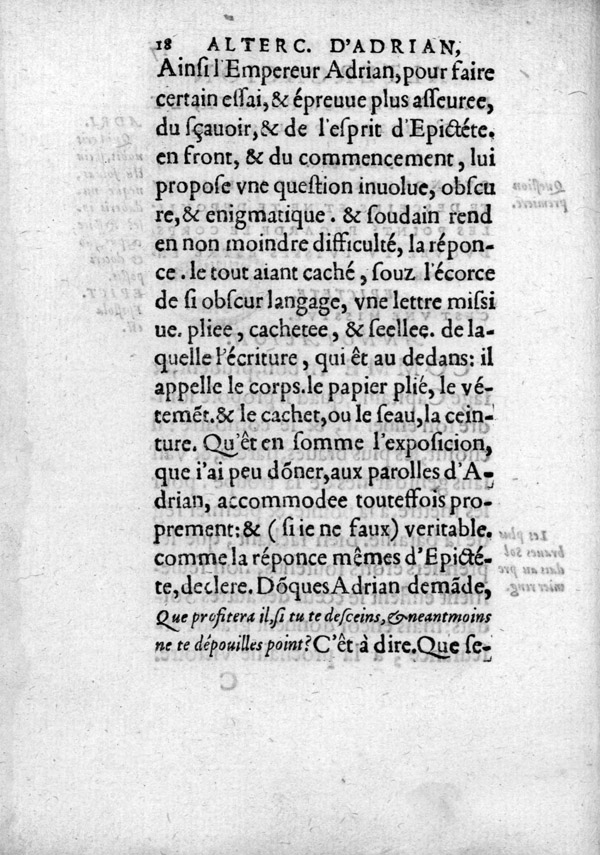 18 ALTERC. D'ADRIAN,
Ainſi l'Empereur Adrian, pour faire
certain eſſai, & épreuue plus aſſeuree,
du ſçauoir, & de l'eſprit d'Epictéte.
en front, & du commencement, lui
propoſe vne queſtion inuolue, obſcu
re, & enigmatique. & ſoudain rend
en non moindre difficulté, la répon-
ce. le tout aiant caché, ſouz l'écorce
de ſi obſcur langage, vne lettre miſſi
ue. pliee, cachetee, & ſeellee. de la-
quelle l'écriture, qui êt au dedans: il
appelle le corps. le papier plié, le vé-
temẽt. & le cachet, ou le ſeau, la cein-
ture. Qu'êt en ſomme l'expoſicion,
que i'ai peu dõner, aux parolles d'A-
drian, accommodee touteffois pro-
prement: & (ſi ie ne faux) veritable.
comme la réponce mêmes d'Epicté-
te, declere. Dõques Adrian demãde,
Que profitera il, ſi tu te deſceins, & neantmoins
ne te dépouilles point? C'êt à dire. Que ſe-